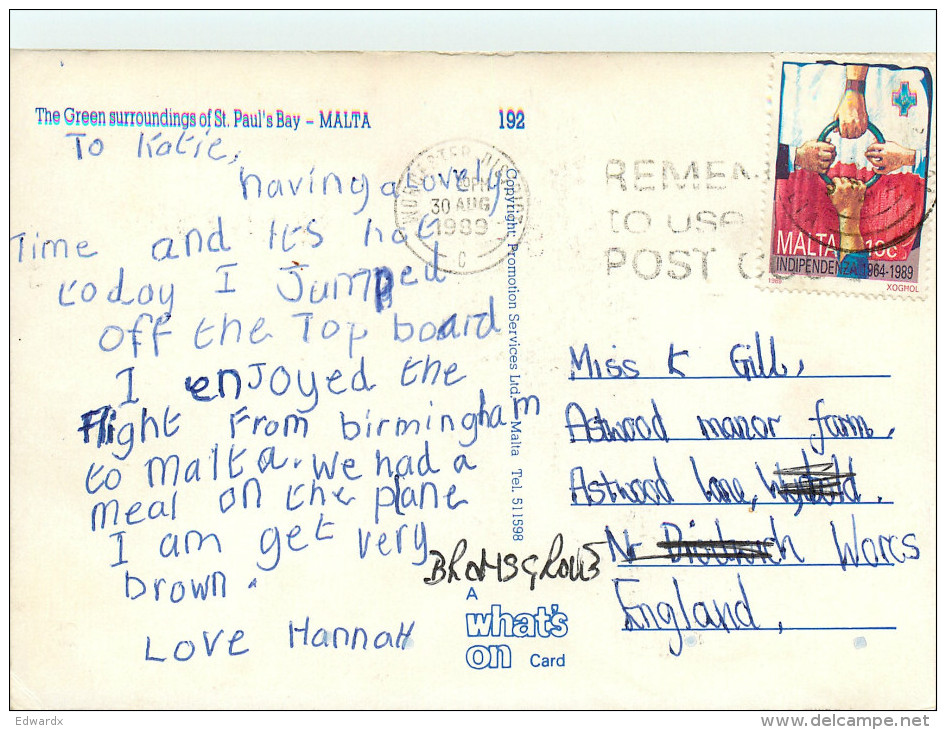 The Green surroundings of St. Paul's Bay – MALTA
192
To Katie,
having a Lovely
Time and its hot
today I Jumped
off the Top board
I enjoyed the
flight From birmingham
to malta. we had a
meal on the plane
I am get very
brown.
LOVE HannaH
Copyright: Promotion Services Ltd. - Malta Tel. 511598
WORCESTER DISTRICT
PM
30 AUG
1989
C
REMEM
to use
POST CO
MALTA 10c
INDIPENDENZA 1964-1989
1989
XOGHOL
Miss K Gill,
Astwood manor farm,
Astwood lane,
Nr Worcs
BROMSGROVE
England,
A
what's
on Card
Edwardx
delcampe.net